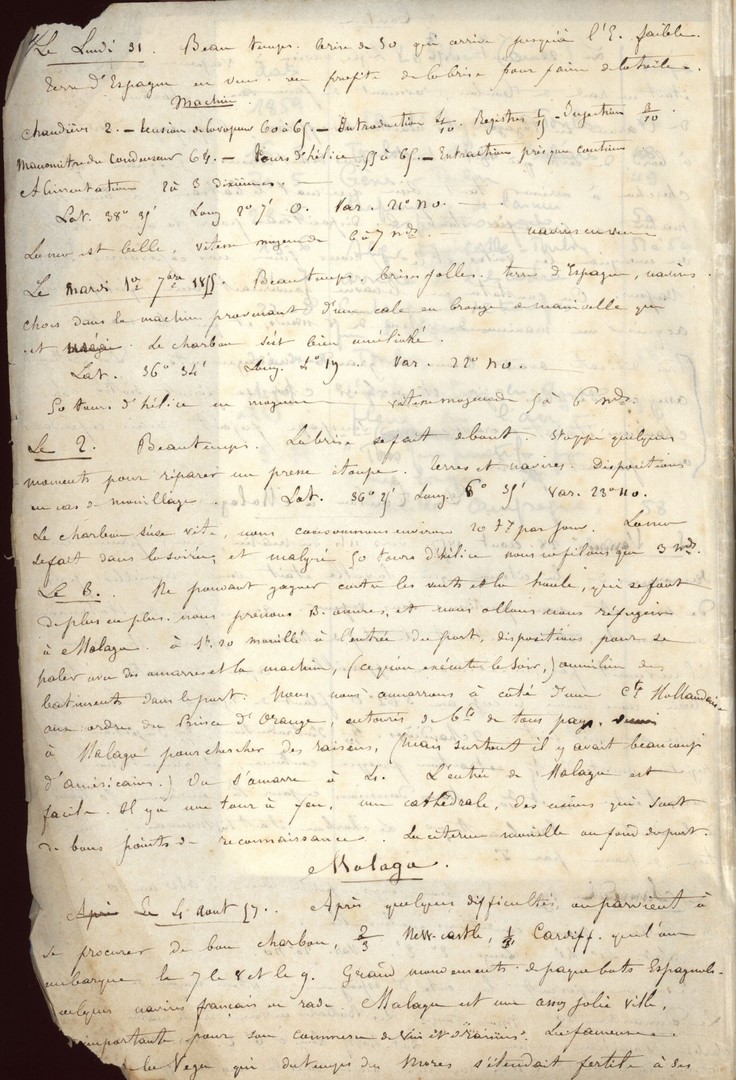 Le Lundi 31. Beau temps. brise de SO qui arrive jusqu'à l'E. faible.
Terre d'Espagne en vue. on profite de la brise pour faire de la toile.
Machine.
Chaudières 2. — tension de la vapeur 60 à 65. — Introduction 4/10. Registres 1/5 — Injection 3/10.
Manomètre du condenseur 64. — Tours d'hélice 55 à 65. — Extraction presque continue
Alimentation 2 à 3 dixièmes. —
Lat. 38° 35' Long 2° 7' O. Var. 21° NO. —
La mer est belle, vitesse moyenne de 6 à 7 nds. navires en vue
Le Mardi 1er 7bre 1857. Beau temps. brises folles. terre d'Espagne, navires.
chocs dans la machine provenant d'une cale en bronze de manivelle qui
est . Le charbon s'est bien amélioré.
Lat. 36° 34' Long. 4° 19 Var. 22° NO.
50 tours d'hélice en moyenne vitesse moyenne de 5 à 6 nds.
Le 2. Beau temps. La brise se fait debout. Stoppé quelques
moments pour réparer un presse étoupe. terres et navires. Dispositions
en cas de mouillage. Lat. 36° 25' Long 6° 35' Var. 23° NO.
Le charbon s'use vite, nous consommons environ 20 tx par jour. La mer
se fait dans la soirée, et malgré 50 tours d'hélice nous ne filons que 3 nds.
Le 3. Ne pouvant gagner contre les vents et la houle, qui se font
de plus en plus. nous prenons B. amures, et nous allons nous réfugier
à Malaga. à 1h.20 mouillé à l'entrée du port, dispositions pour se
haler avec des amarres et la machine, (ce qui on exécute le soir,) au milieu des
batiments dans le port. Nous nous amarrons à côté d'une Cte Hollandaise
aux ordres du Prince d'Orange, entourés de bts de tous pays. venus
à Malaga pour chercher des raisins, (mais surtout il y avait beaucoup
d'américains.) On s'amarre à 4. L'entrée de Malaga est
facile. Il y a une tour à feu, une cathédrale, des usines qui sont
de bons points de reconnaissance. La citerne mouille au fond du port.
Malaga.
Après Le 4 Aout 57. Après quelques difficultés, on parvient à
se procurer de bon charbon, 2/3 New-castle, 1/3 Cardiff. que l'on
embarque le 7 le 8 et le 9. Grand mouvements de paquebots Espagnols.
quelques navires français en rade. Malaga est une assez jolie ville,
importante pour son commerce de vin et raisins. La fameuse
de la Vega qui du temps des Mores s'étendait fertile à ses